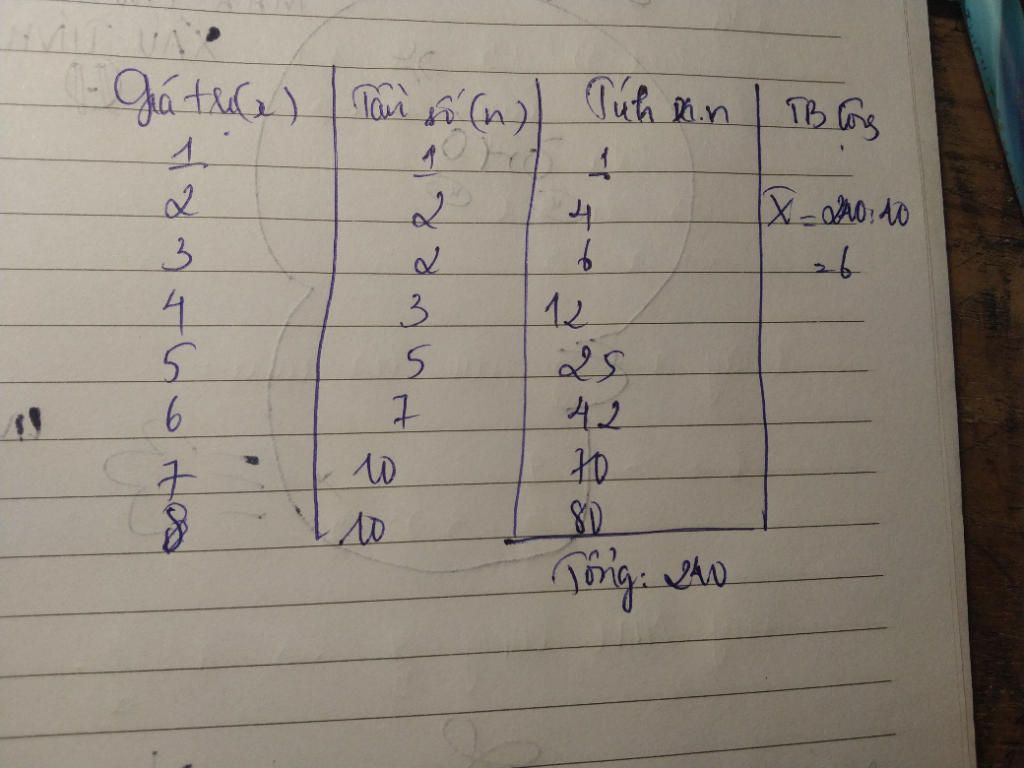 Giá trị (x) Tần số (n) Tính x.n TB Cộng
1 1 1
2 2 4 X̄ = 240:10
3 2 6 = 6
4 3 12
5 5 25
6 7 42
7 10 70
8 10 80
Tổng: 240